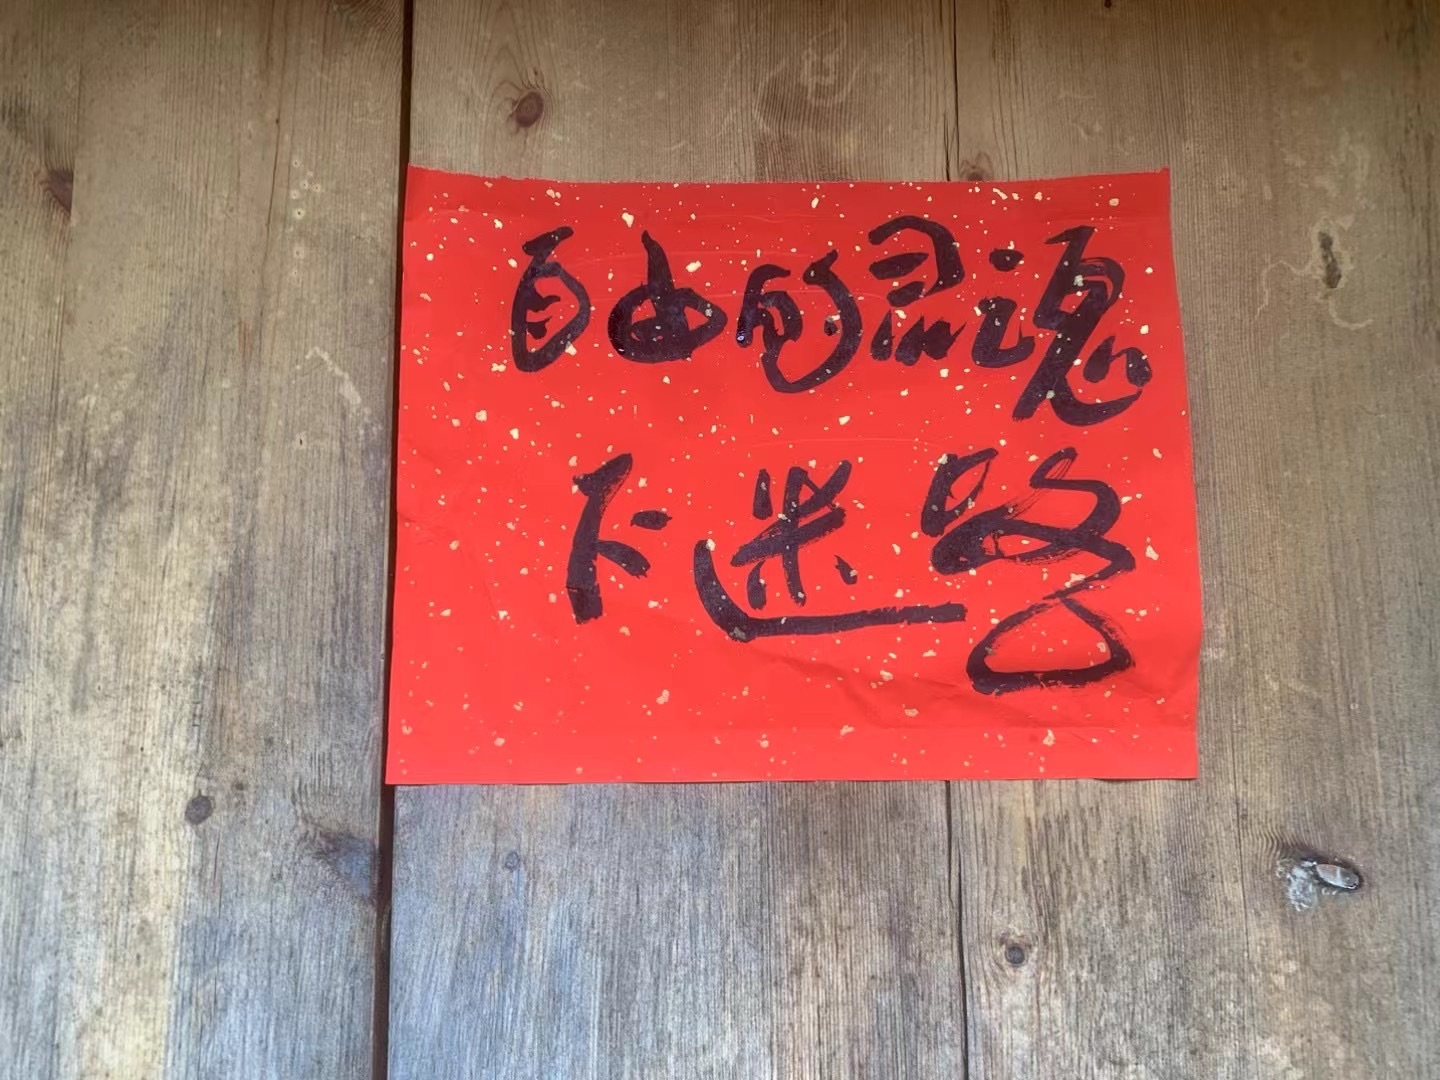 自由的灵魂
不迷路